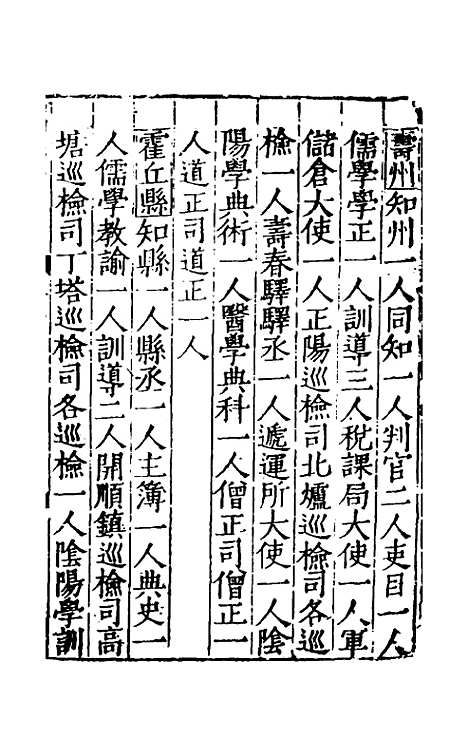 壽州知州一人同知一人判官二人吏目一人
儒學學正一人訓導三人稅課局大使一人軍
儲倉大使一人正陽巡檢司北爐巡檢司各巡
檢一人壽春驛驛丞一人遞運所大使一人陰
陽學典術一人醫學典科一人僧正司僧正一
人道正司道正一人
霍丘縣知縣一人縣丞一人主簿一人典史一
人儒學教諭一人訓導二人開順鎮巡檢司高
塘巡檢司丁塔巡檢司各巡檢一人陰陽學訓